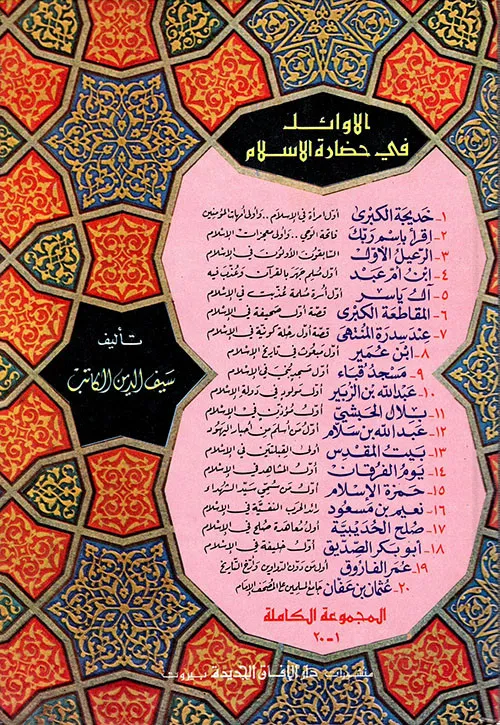 الاوائل
في حضارة الاسلام
١- خديجة الكبرى أول امرأة في الإسلام.. وأولى أمهات المؤمنين
٢- اقرأ باسم ربك فاتحة الوحي.. وأولى معجزات الإسلام
٣- الرعيل الأول السابقون الأولون في الإسلام
٤- ابن أم عبد أول مسلم جهر بالقرآن وعذب فيه
٥- آل ياسر أول أسرة مسلمة عذبت في الإسلام
٦- المقاطعة الكبرى قصة أول صحيفة في الإسلام
٧- عند سدرة المنتهى قصة أول رحلة كونية في الإسلام
٨- ابن عمير أول مبعوث في تاريخ الإسلام
٩- مسجد قباء أول مسجد بني في الإسلام
١٠- عبد الله بن الزبير أول مولود في دولة الإسلام
١١- بلال الحبشي أول مؤذن في الإسلام
١٢- عبد الله بن سلام أول من أسلم من أحبار اليهود
١٣- بيت المقدس أولى القبلتين في الإسلام
١٤- يوم الفرقان أول المشاهد في الإسلام
١٥- حمزة الإسلام أول من سمي سيد الشهداء
١٦- نعيم بن مسعود رائد الحرب النفسية في الإسلام
١٧- صلح الحديبية أول معاهدة صلح في الإسلام
١٨- أبو بكر الصديق أول خليفة في الإسلام
١٩- عمر الفاروق أول من دون الدواوين وأرخ التاريخ
٢٠- عثمان بن عفان جامع المسلمين على المصحف الإمام
المجموعة الكاملة
١-٢٠
تأليف
سيف الدين الكاتب
منشورات دار الآفاق الجديدة بيروت